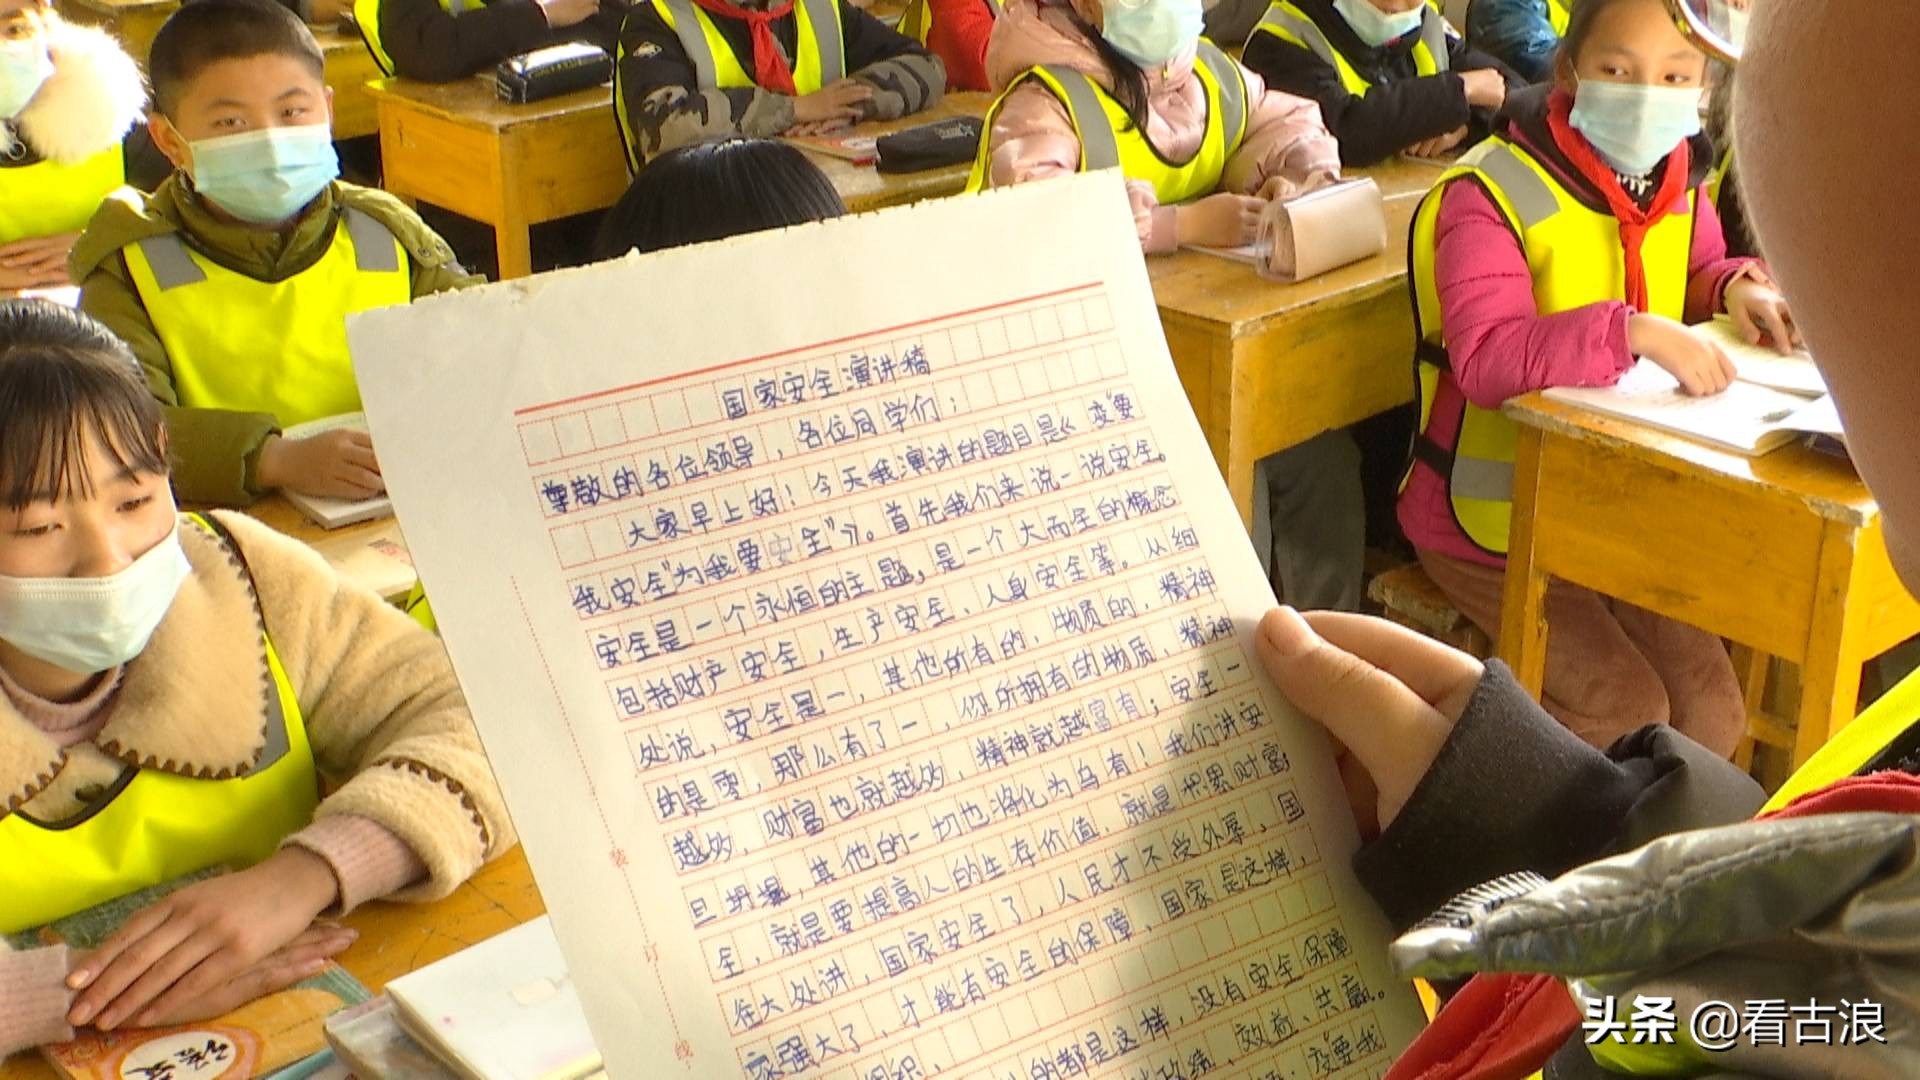 国家安全演讲稿
尊敬的各位领导，各位同学们：
大家早上好！今天我演讲的题目是《变“要
我安全”为“我要安全”》。首先我们来说一说安全。
安全是一个永恒的主题，是一个大而全的概念
包括财产安全，生产安全、人身安全等。从细
处说，安全是一，其他所有的、物质的、精神
的是零，那么有了一，你所拥有的物质、精神
越多，财富也就越多，精神就越富有；安全一
旦坍塌，其他的一切也将化为乌有！我们讲安
全，就是要提高人的生存价值，就是积累财富，
往大处讲，国家安全了，人民才不受外辱，国
家强大了，才能有安全的保障，国家是这样，
的都是这样，没有安全保障
效益、共赢。
变“要我
装
订
线
头条 @看古浪